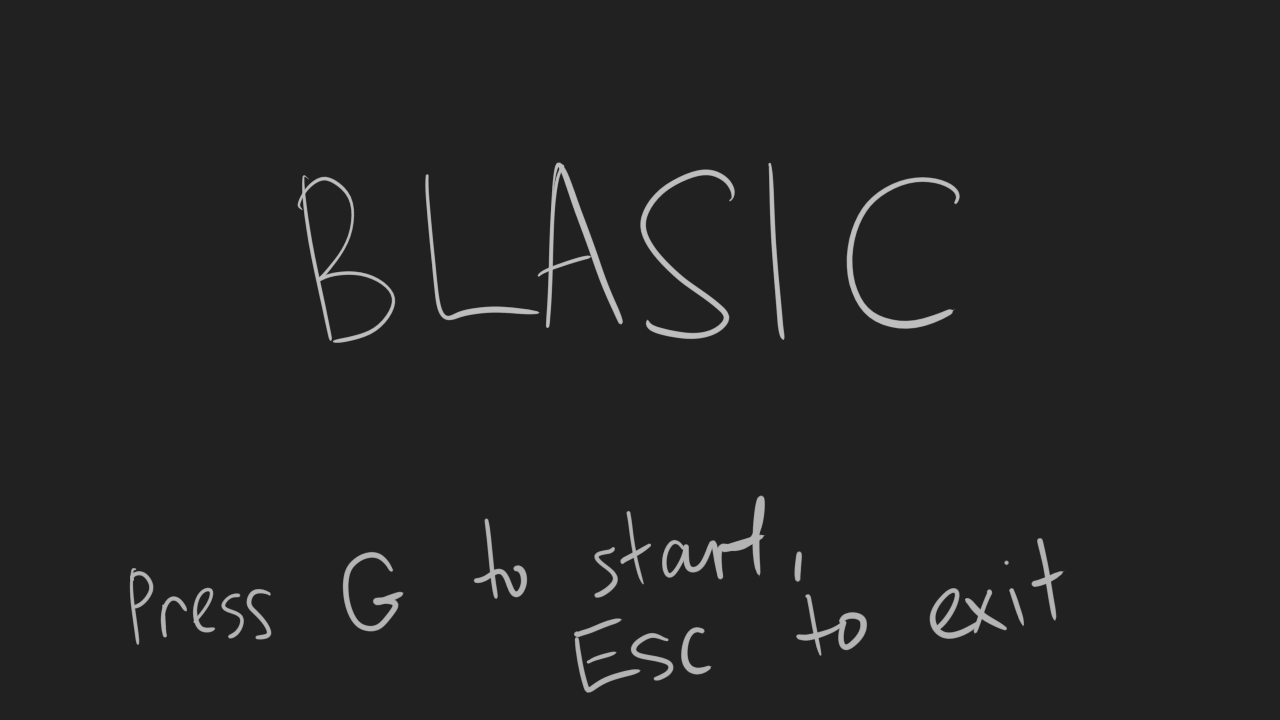 BLASIC
Press G to start,
Esc to exit